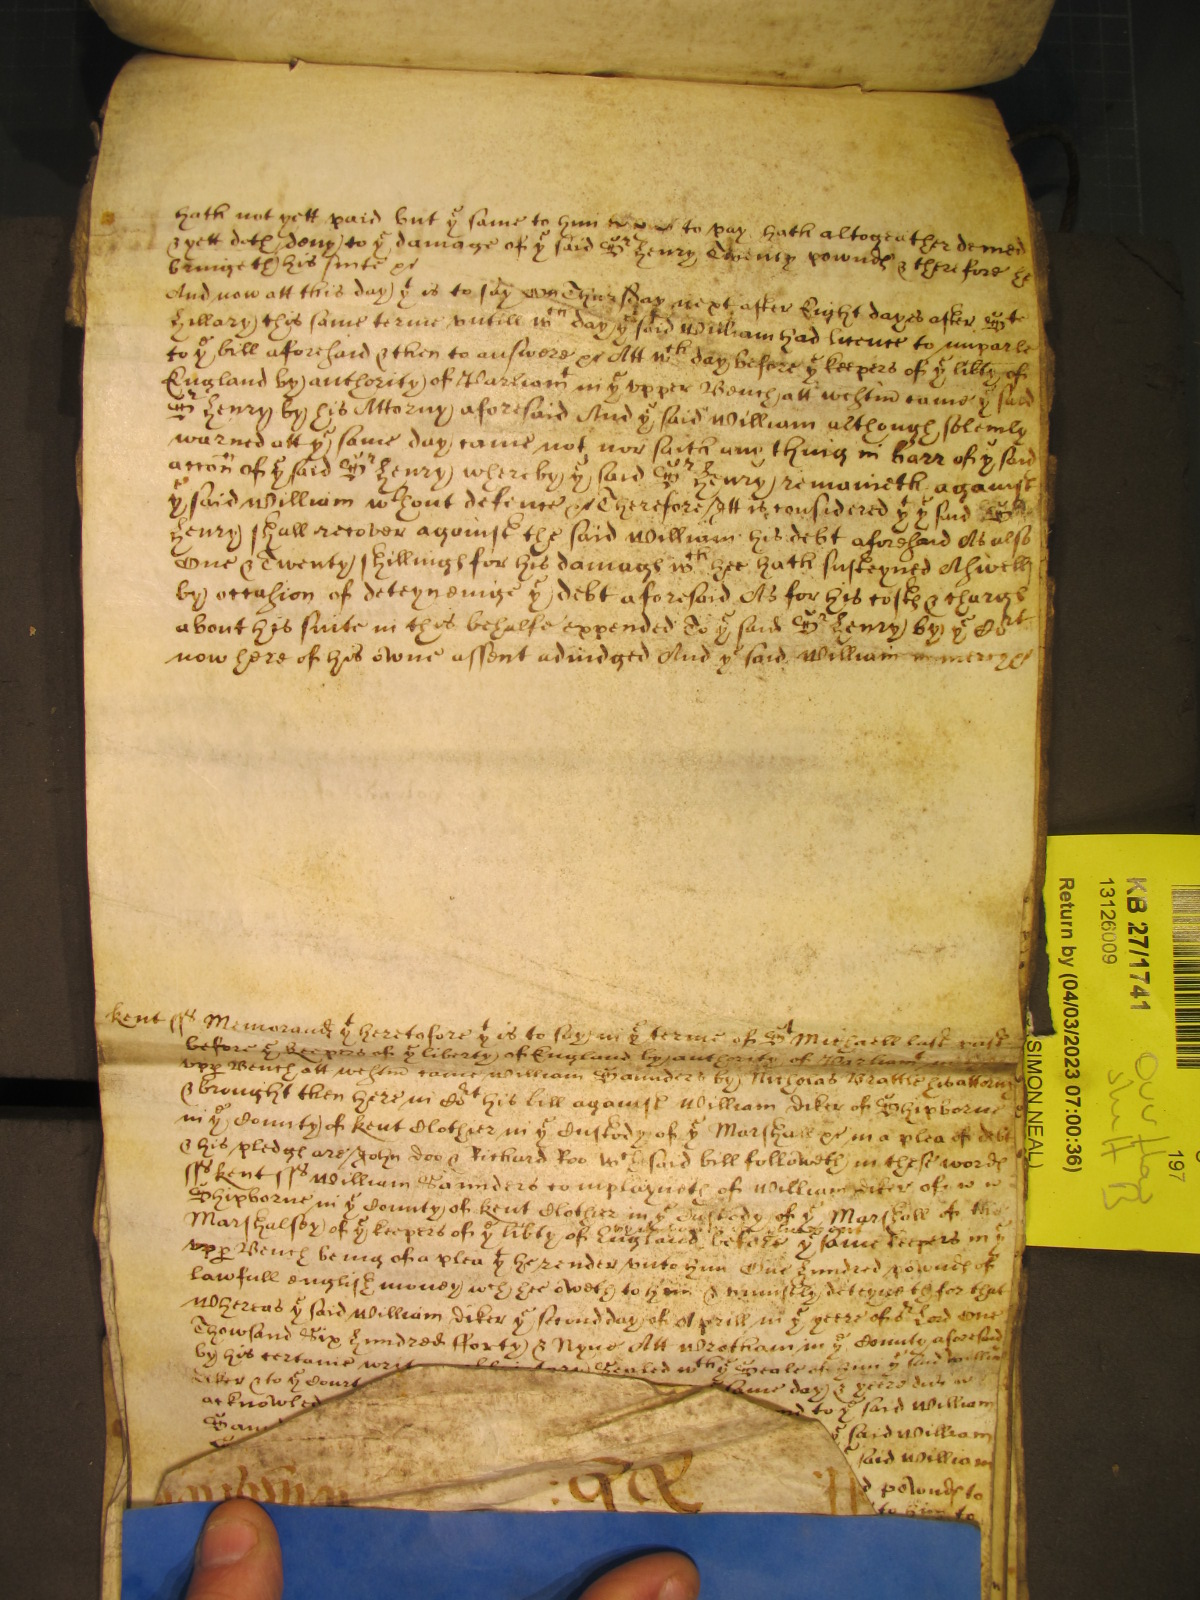 hath not yett paid but ye same to him to pay hath altogeather denied
& yett doth deny to ye damage of ye said Sr Henry Twenty pownds & therefore he
bringeth his suite &c
And now att this day yt is to say on Thursday next after Eight dayes after St
Hillary this same terme untill wch day ye said William had licence to imparle
to ye bill aforesaid & then to answere &c Att wch day before ye keepers of ye lib'ty of
England by authority of Parliamt in ye upper Bench att westm' came ye said
Sr Henry by his Attorny aforesaid And ye said William although solemly
warned att ye same day came not nor saith any thing in barr of ye said
accon of ye said Sr Henry whereby ye said Sr Henry remaineth against
ye said William wthout defence &c Therefore Itt is considered yt ye said Sr
Henry shall recover against the said William his debt aforesaid As also
One & Twenty shillings for his damags wch hee hath susteyned Aswell
by occasion of deteyneinge ye debt aforesaid As for his costs & chargs
about his suite in this behalfe expended To ye said Sr Henry by ye Cort
now here of his owne assent adiudged And ye said William in mercy &c
kent ss Memorand yt heretofore yt is to say in ye terme of St Michaell last past
before ye keepers of ye liberty of England by authority of Parliamt in ye
upp Bench att westm' came William Saunders by Nicholas Brattle his attorny
& brought then here in Cort his bill against William Diker of Shipborne
in ye County of Kent Clothier in ye Custody of ye Marshall &c in a plea of debt
& his pledgs are John Doo & Richard Roo Wch said bill followeth in these words
ss kent ss William Saunders complayneth of William Diker of
Shipborne in ye County of kent Clothier in ye Custody of ye Marshall of the
Marshalsey of ye keepers of ye lib'ty of England before ye same keepers in ye
upp Bench being of a plea yt he render unto him One hundred pownds of
lawfull english money wch hee oweth to him & uniustly deteyneth for that
Whereas ye said William Diker ye second day of Aprill in ye yeere of or Lord One
Thowsand Six hundred fforty & Nyne Att Wrotham in ye County aforesaid
by his certaine writ Sealed wth ye Seale of him ye said William
Diker & to ye Court same day & yeere
acknowled nd to ye said William
Saun ye said William
said William
d pownds to
to him to
KB 27/1741
13126009
Return by (04/03/2023 07:00:36)
(SIMON NEAL)
197